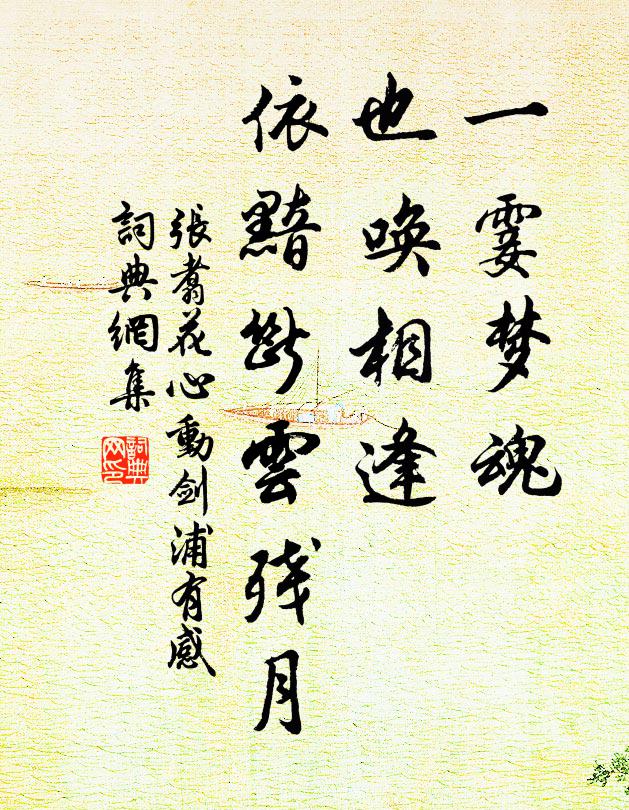 一霎梦魂
也唤相逢
依黯斷雲残月
張翥花心動剑浦有感
詞典網集
詞典网印